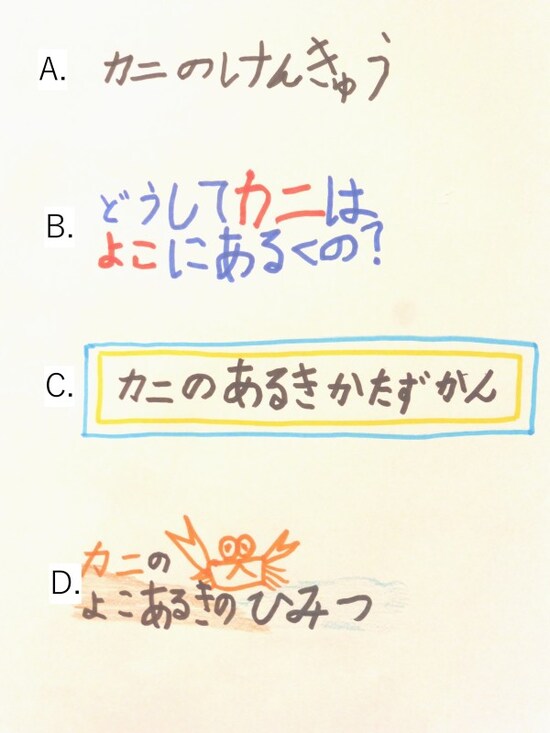 A. カニのけんきゅう
B. どうしてカニは
よこにあるくの?
C. カニのあるきかたずかん
D. カニの
よこあるきのひみつ